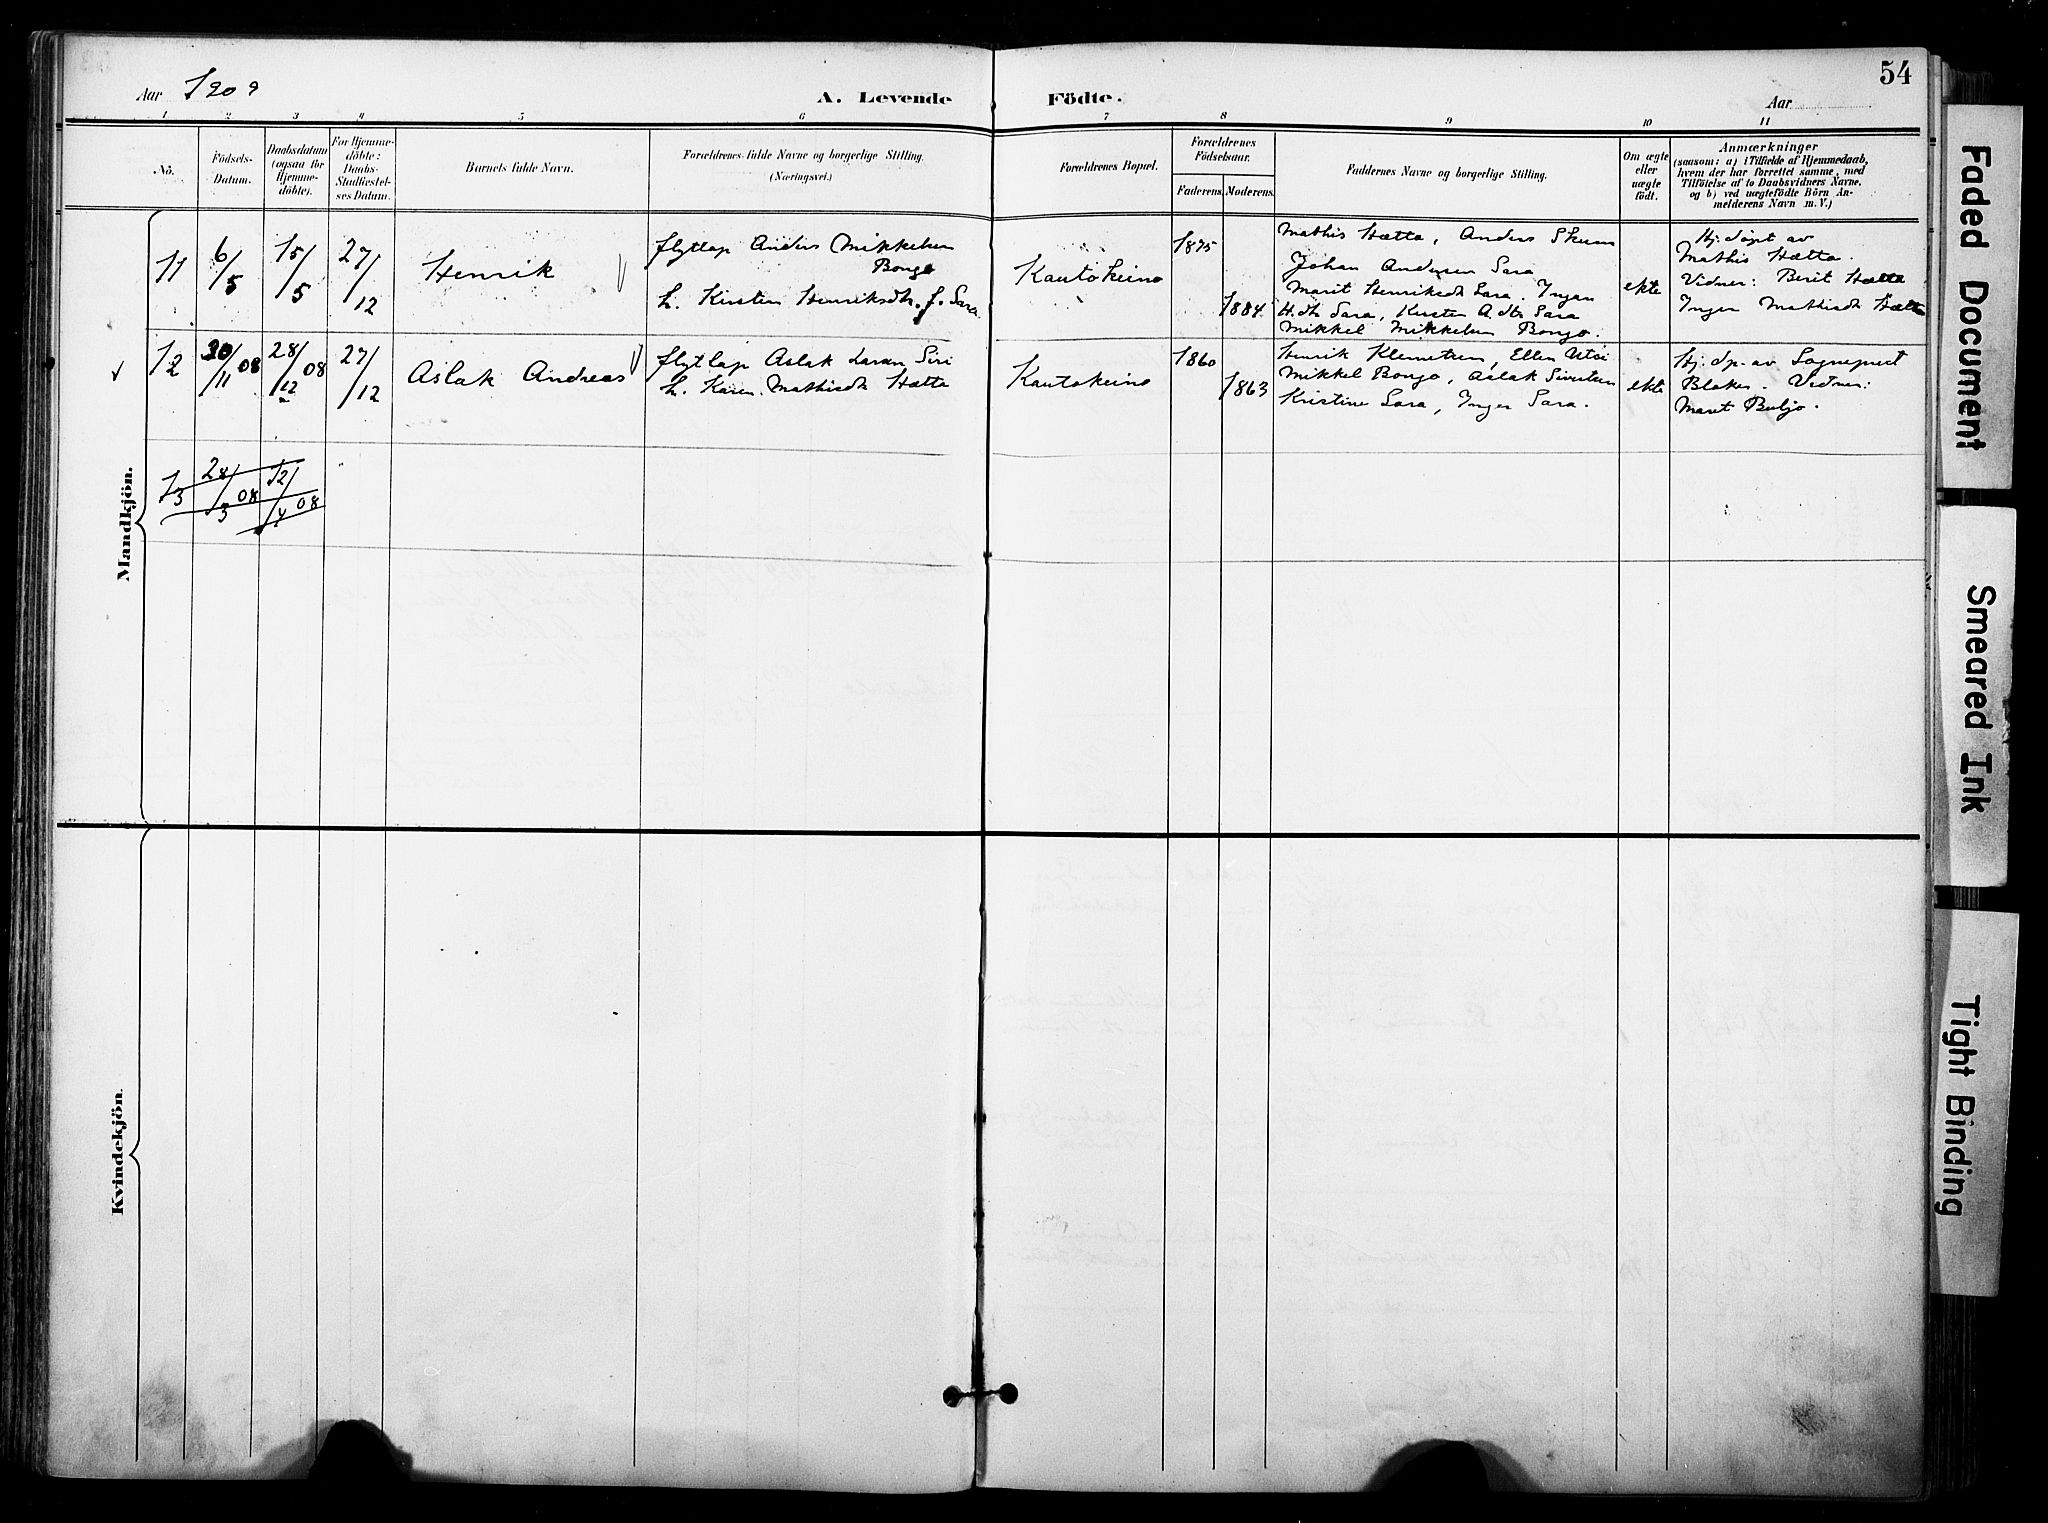 Aar 1909
A. Levende Födte.
Aar
54
1 2 3 4 5 6 7 8 9 10 11
No.
Födsels-
Datum.
Daabsdatum
(ogsaa for
Hjemme-
döbte).
For Hjemme-
döbte:
Daabs-
Stadfæstel-
ses Datum.
Barnets fulde Navn.
Forældrenes fulde Navne og borgerlige Stilling.
(Næringsvei.)
Forældrenes Bopæl.
Forældrenes
Födselsaar.
Faderens. Moderens.
Faddernes Navne og borgerlige Stilling.
Om ægte
eller
uægte
födt.
Anmærkninger
(saasom: a) i Tilfælde af Hjemmedaab,
hvem der har forrettet samme, med
Tilföielse af to Daabsvidners Navne,
og b) ved uægtefödte Börn An-
melderens Navn m. V.)
Mandkjön.
11
6/5
15/5
27/12
Henrik
flytlap Anders Mikkelsen
Bongo
h. Kirsten Henriksdtr. f. Sara
Kautokeino
1875
1884
Mathis Hætta, Anders Skum
Johan Andersen Sara
Marit Henriksdt Sara. Inger
H.dtr Sara, Kirsten A.dtr Sara
Mikkel Mikkelsen Bongo.
ekte
Hj. døpt av
Mathis Hætta.
Vidner: Berit Hætta
Inger Mathisdt Hætta
12
30/11 08
28/12 08
27/12
Aslak Andreas
flytlap Aslak Larsen Siri
h. Karen Mathisdt Hætta
Kautokeino
1860
1863
Henrik Klemetsen, Ellen Utsi
Mikkel Bongo, Aslak Sivertsen
Kristine Sara, Inger Sara.
ekte
Hj. dp. av Sogneprest
Blaker. Vidner:
Marit Buljo.
13
28/3 08
12/4 08
Kvindekjön.
Faded Document
Smeared Ink
Tight Binding